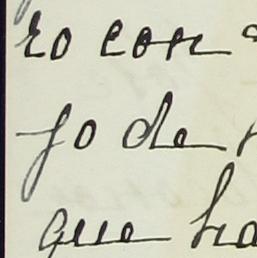 ro con
fo de
que ha